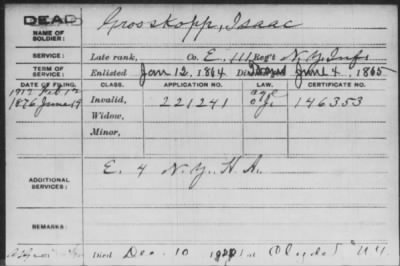 DEAD
NAME OF SOLDIER: Grosskopp, Isaac
SERVICE: Late rank, Co. E. 111 Reg't N. Y. Inf.
TERM OF SERVICE: Enlisted Jan 12, 1864 June 4, 1865
DATE OF FILING. CLASS. APPLICATION NO. LAW. CERTIFICATE NO.
1917 Feb 12 age
1876 June 19 Invalid, 221241 146353
Widow,
Minor,
ADDITIONAL SERVICES: E. 4 N.Y. H A.
REMARKS:
Died Dec. 10 at Clyde N.Y